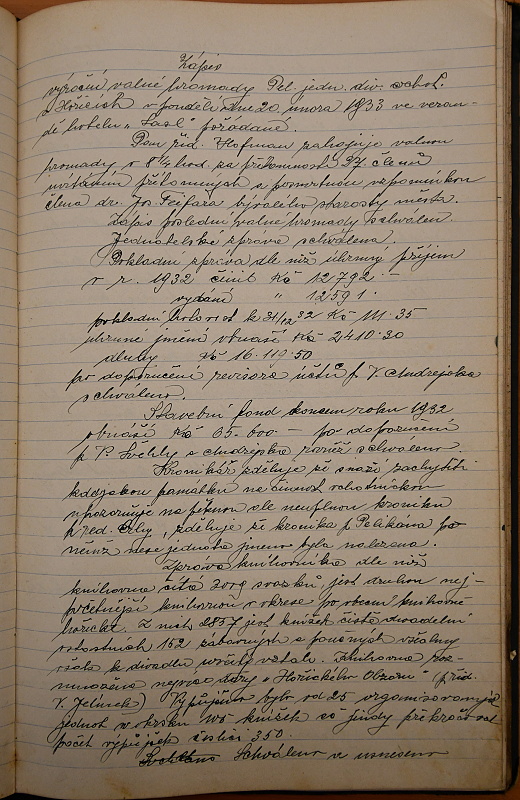 Zápis
výroční valné hromady Pel. jedn. div. ochot.
v Hořicích v pondělí dne 20. února 1933 ve veran-
dě hotelu „Sasl" pořádané.
Pan řed. Hofman zahajuje valnou
hromady v 8¼ hod. za přítomnosti 37 členů
uvítáním přítomných a posmrtnou vzpomínkou
člena dr. Jos. Pejřara bývalého starosty města.
Zápis poslední valné hromady schválen.
Jednatelská zpráva schválena.
Pokladní zpráva dle níž úhrnný příjem
v r. 1932 činil Kč 12792.–
vydání " 12591.
pokladní hotovost k 31/12 32 Kč 111.35
úhrnné jmění obnáší Kč 2410.30
dluhy Kč 16.119.50
po doporučení revisorů účtů p. V. Andrejska
schváleno.
Stavební fond koncem roku 1932
obnáší Kč 65.600 – po doporučení
p. Sochly a Andrejska rovněž schváleno
Kronikář sděluje že snaží zachytiti
každou památku na činnost ochotnickou
upozorňuje na pěknou ale neúplnou kroniku
p. řed. , sděluje že kronika p. Pelikana po
němž nese jednota jméno byla nalezena.
Zpráva knihovníka dle níž
knihovna čítá 3009 svazků, jest druhou nej-
početnější knihovnou v okrese po obecní knihovně
hořické. Z nich 2857 jest knížek čistě divadelní
ostatních 152 zábavných a poučných všechny
však k divadlu určitý vztah. Knihovna roz-
množena nejvíce dary „Hořického Obzoru" (před.
V. Jelínek) Vypůjčeno bylo od 25 organisovaných
jednot v okrsku 105 knížek což jindy překročoval
počet výpůjček číslici 350.
Schváleno a usneseno